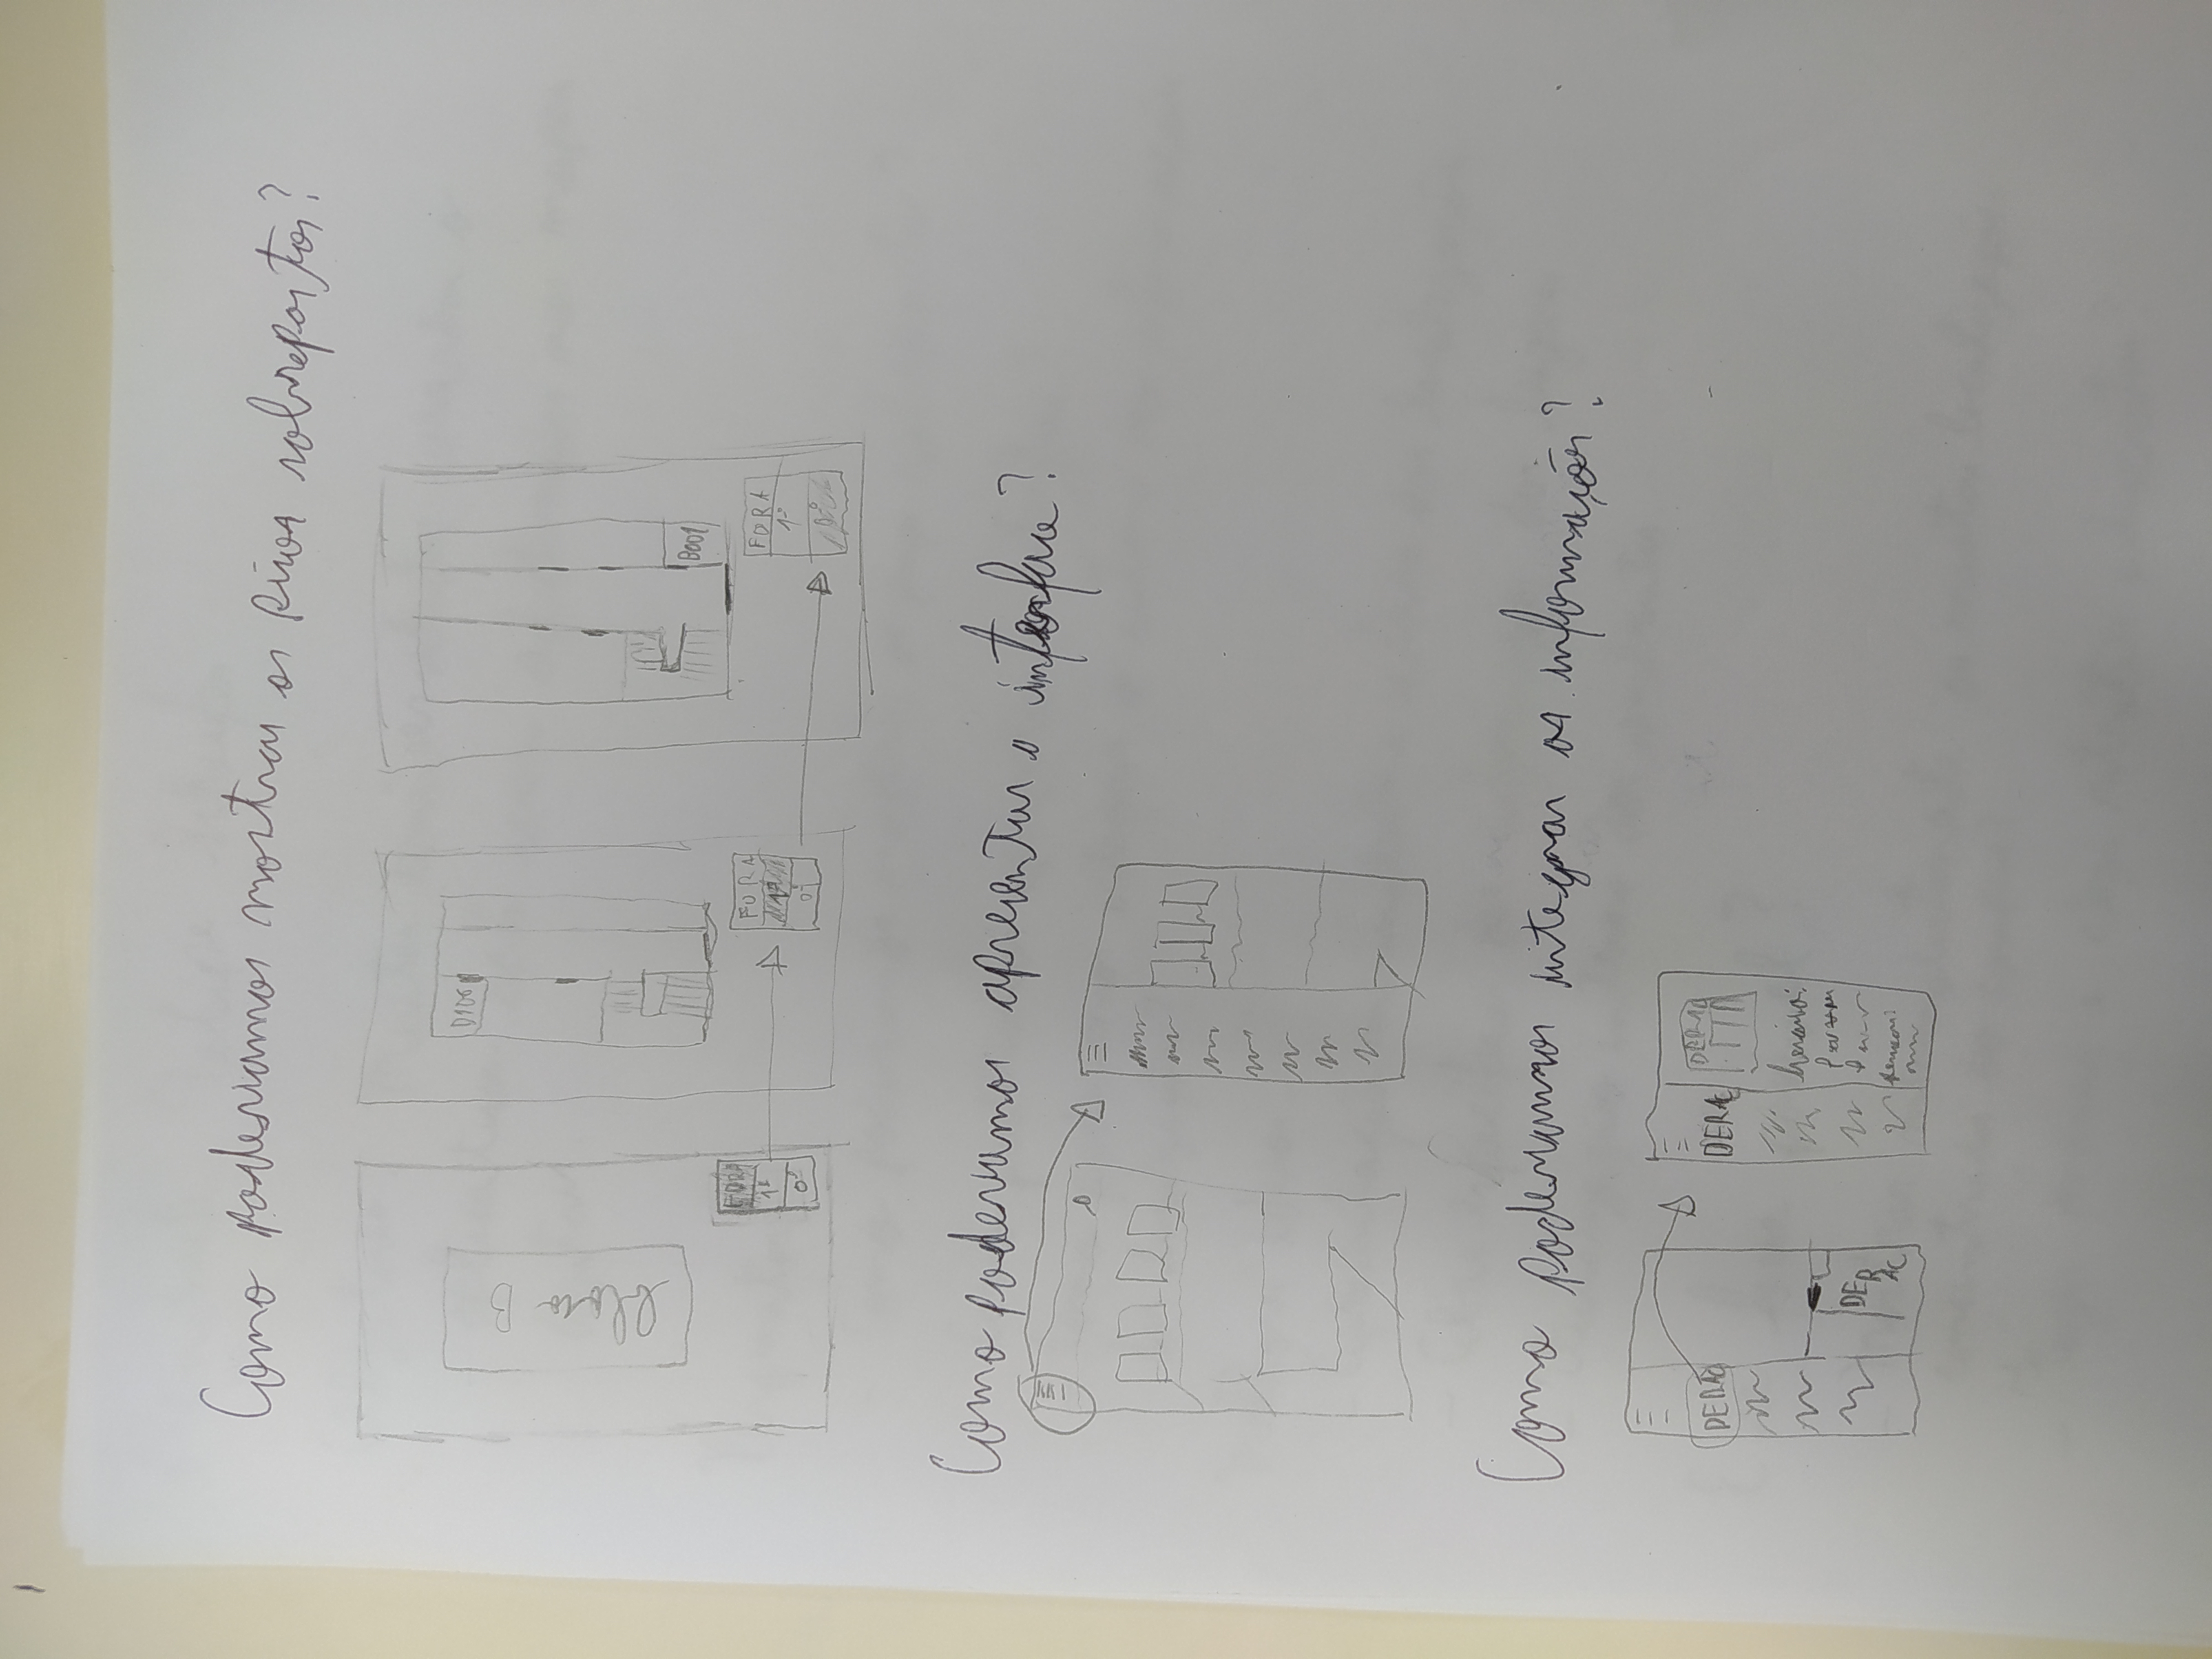 Como poderíamos mostrar os pisos sobrepostos?
Bloco
B
FORA
1º
0º
D106
FORA
0º
B001
FORA
1º
Como poderíamos apresentar a interface?
Como poderíamos integrar as informações?
DERAC
DER
AC
DERAC
DERAC
horário: